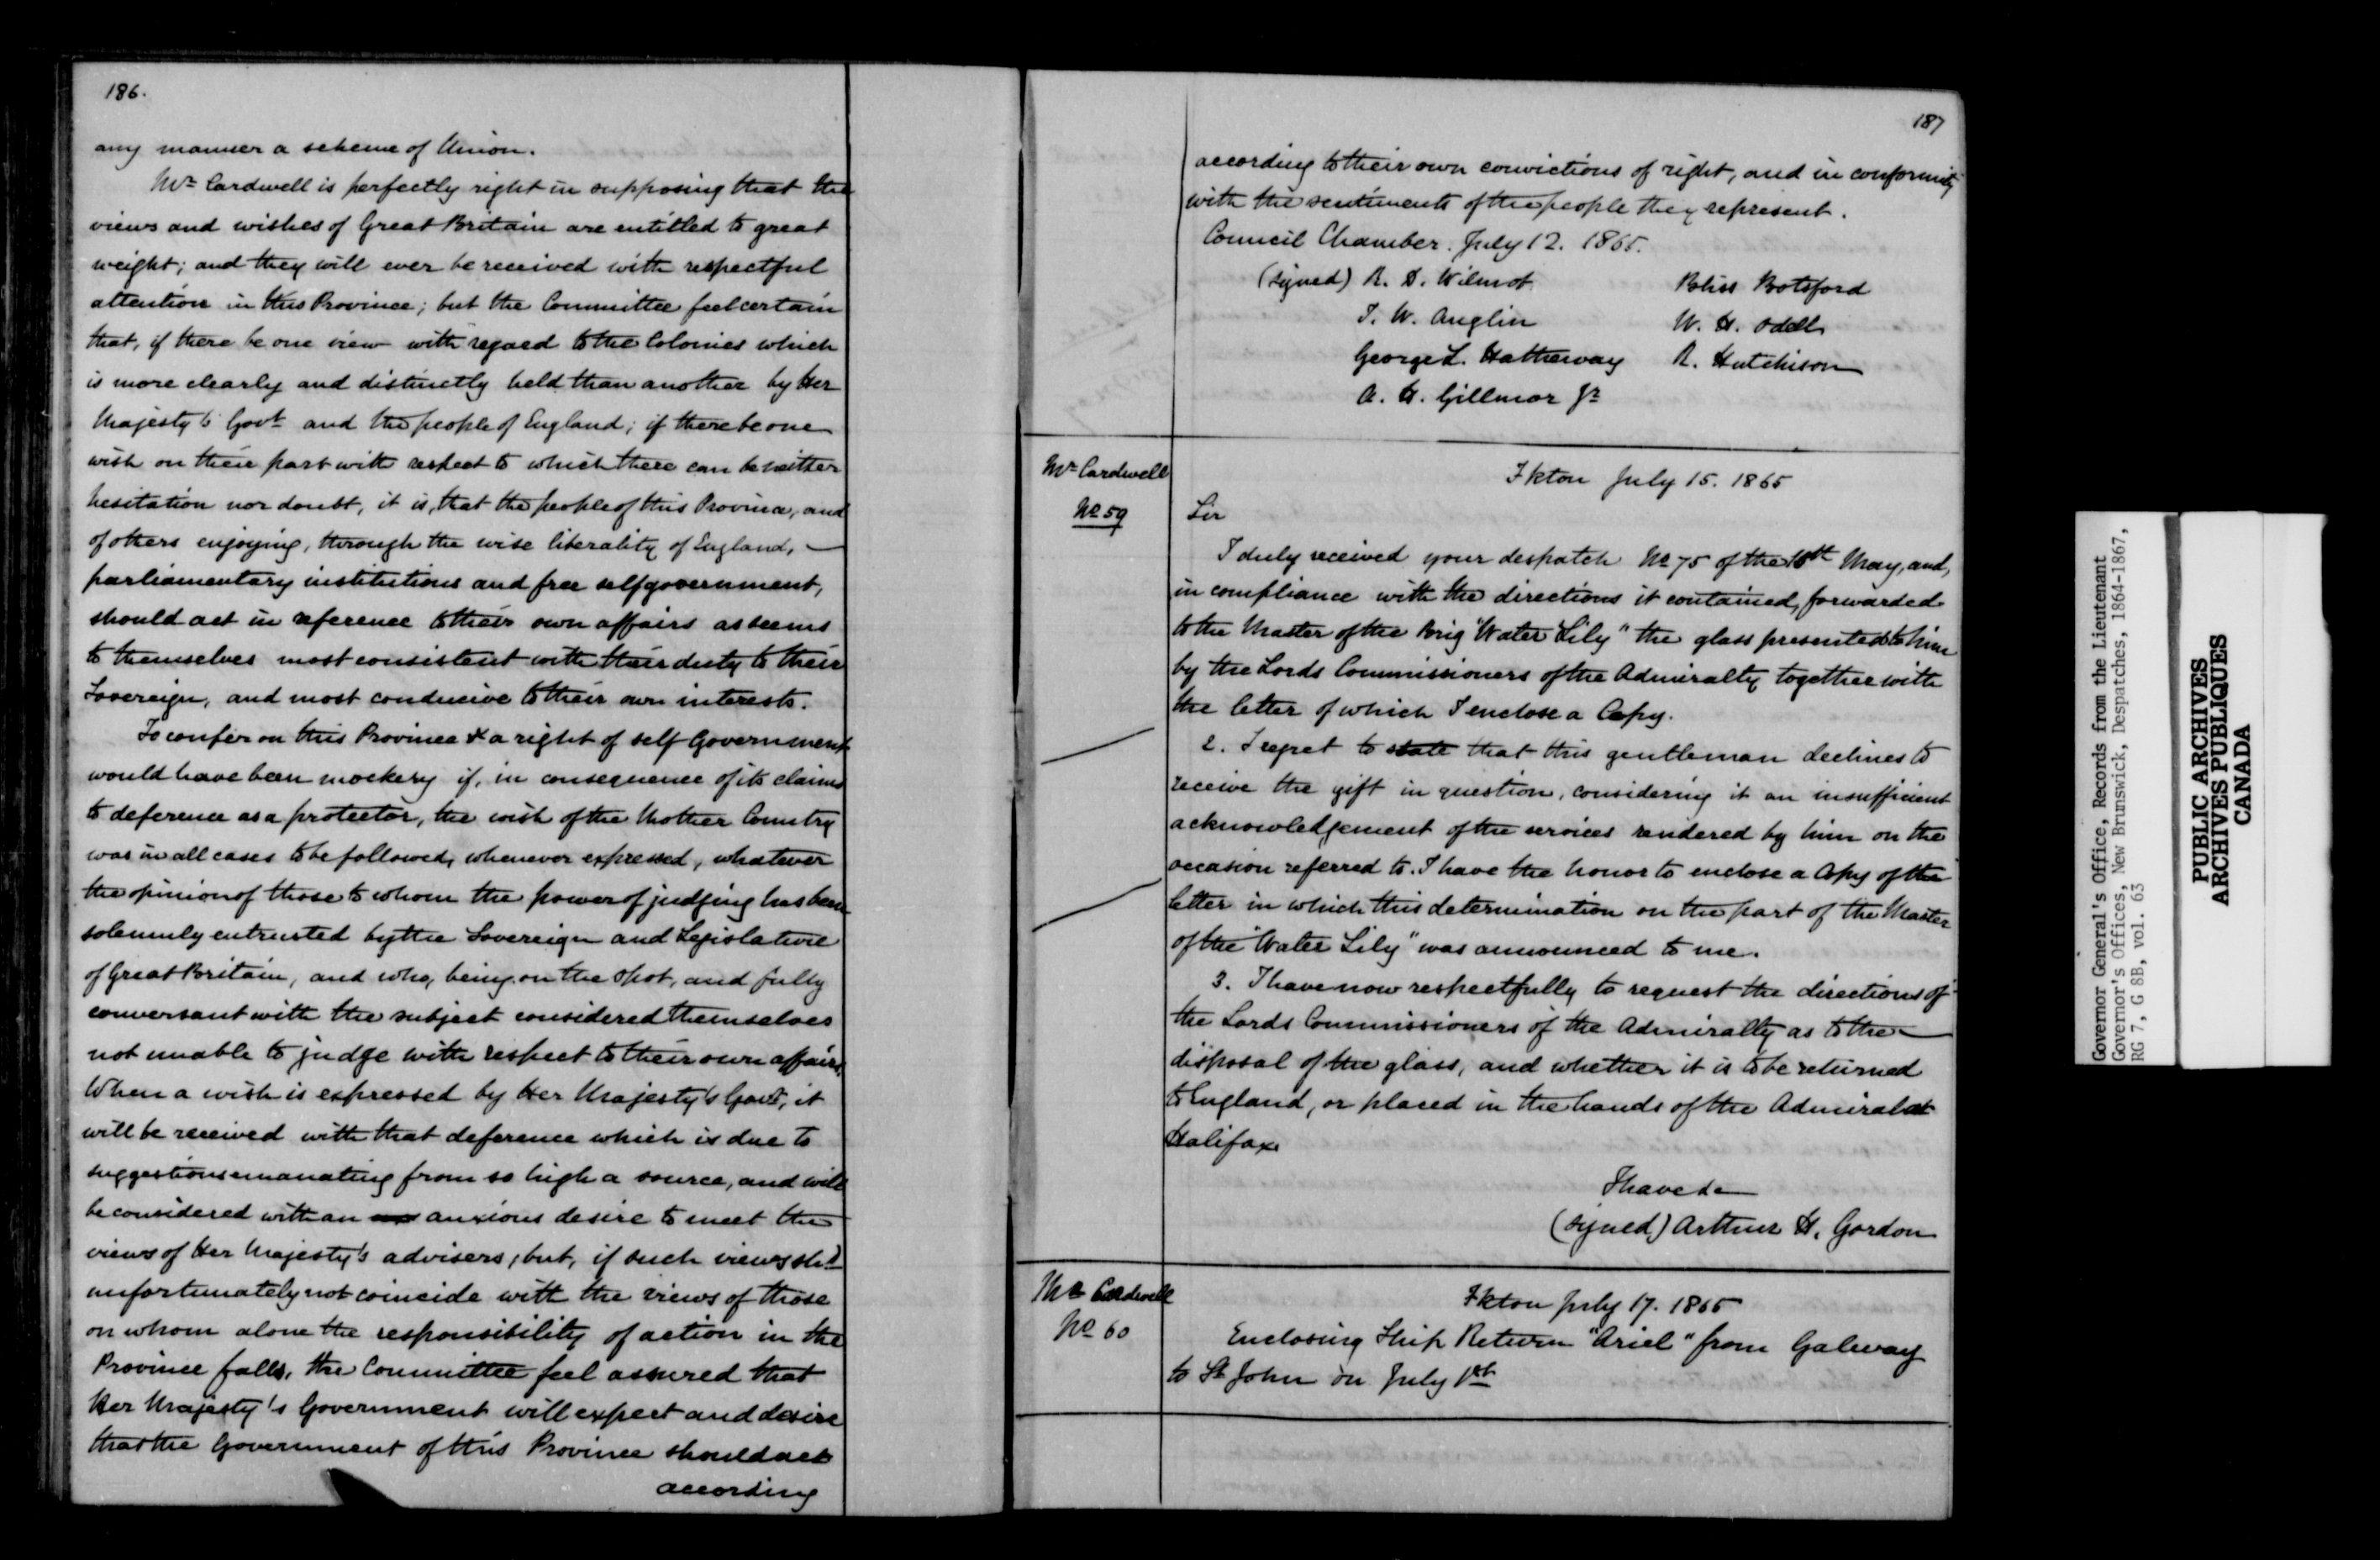 186.
any manner a scheme of Union.
Mr Cardwell is perfectly right in supposing that the
views and wishes of Great Britain are entitled to great
weight; and they will ever be received with respectful
attention in this Province; but the Committee feel certain
that, if there be one view with regard to the Colonies which
is more clearly and distinctly held than another by Her
Majesty's Govt and the people of England; if there be one
wish on their part with respect to which there can be neither
hesitation nor doubt, it is, that the people of this Province, and
of others enjoying, through the wise liberality of England,
parliamentary institutions and free self government,
should act in reference to their own affairs as seems
to themselves most consistent with their duty to their
Sovereign, and most conducive to their own interests.
To confer on this Province a right of self Government
would have been mockery if, in consequence of its claims
to deference as a protector, the wish of the Mother Country
was in all cases to be followed, whenever expressed, whatever
the opinion of those to whom the power of judging has been
solemnly entrusted by the Sovereign and Legislature
of Great Britain, and who, being on the spot, and fully
conversant with the subject considered themselves
not unable to judge with respect to their own affairs.
When a wish is expressed by Her Majesty's Govt, it
will be received with that deference which is due to
suggestions emanating from so high a source, and will
be considered with an anxious desire to meet the
views of Her Majesty's advisers, but, if such views shd
unfortunately not coincide with the views of those
on whom alone the responsibility of action in the
Province falls, the Committee feel assured that
Her Majesty's Government will expect and desire
that the Government of this Province should act
according
187
according to their own convictions of right, and in conformity
with the sentiments of the people they represent.
Council Chamber. July 12. 1865.
(signed) R. D. Wilmot Bliss Botsford
T. W. Anglin W. H. Odell
George L. Hatheway R. Hutchison
A. H. Gillmor Jr
Mr Cardwell
No 59
Fkton July 15. 1865
Sir
I duly received your despatch No 75 of the 10th May, and,
in compliance with the directions it contained, forwarded
to the Master of the Brig "Water Lily" the glass presented to him
by the Lords Commissioners of the Admiralty together with
the letter of which I enclose a Copy.
2. I regret to state that this gentleman declines to
receive the gift in question, considering it an insufficient
acknowledgement of the services rendered by him on the
occasion referred to. I have the honor to enclose a Copy of the
letter in which this determination on the part of the Master
of the "Water Lily" was announced to me.
3. I have now respectfully to request the directions of
the Lords Commissioners of the Admiralty as to the
disposal of the glass, and whether it is to be returned
to England, or placed in the hands of the Admiral at
Halifax
I have &c
(signed) Arthur H. Gordon
Mr Cardwell
No 60
Fkton July 17. 1865
Enclosing Ship Return "Ariel" from Galway
to St John on July 1st
Governor General's Office, Records from the Lieutenant
Governor's Offices, New Brunswick, Despatches, 1864-1867,
RG 7, G 8B, vol. 63
PUBLIC ARCHIVES
ARCHIVES PUBLIQUES
CANADA